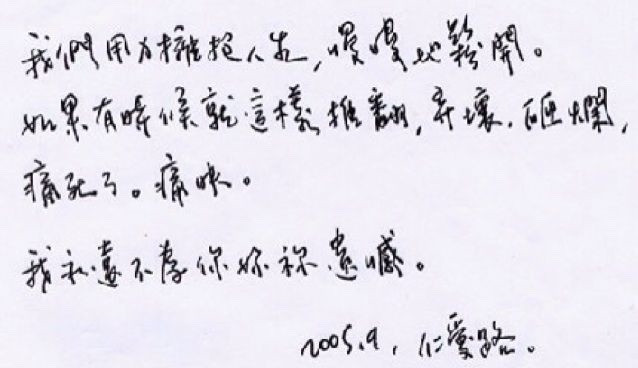 我們用力擁抱人生,慢慢地鬆開。
如果有時候就這樣推翻,弄壞,砸爛,
痛死了。痛快。
我永遠不為你妳祢遺憾。
2005.9, 仁愛路。